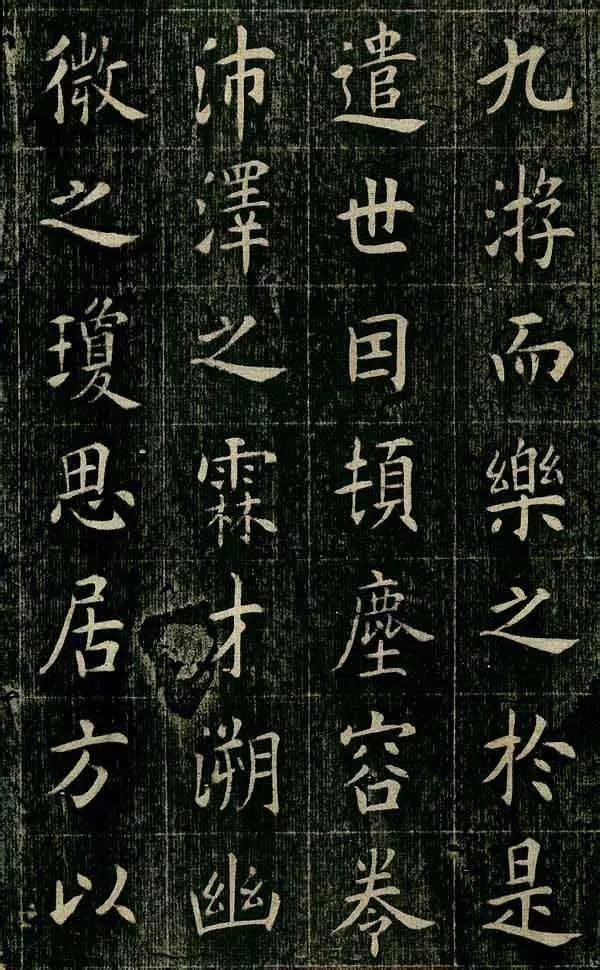 九游而樂之於是
遣世囙頓塵容
沛澤之霖才溯幽
微之瓊思居方以